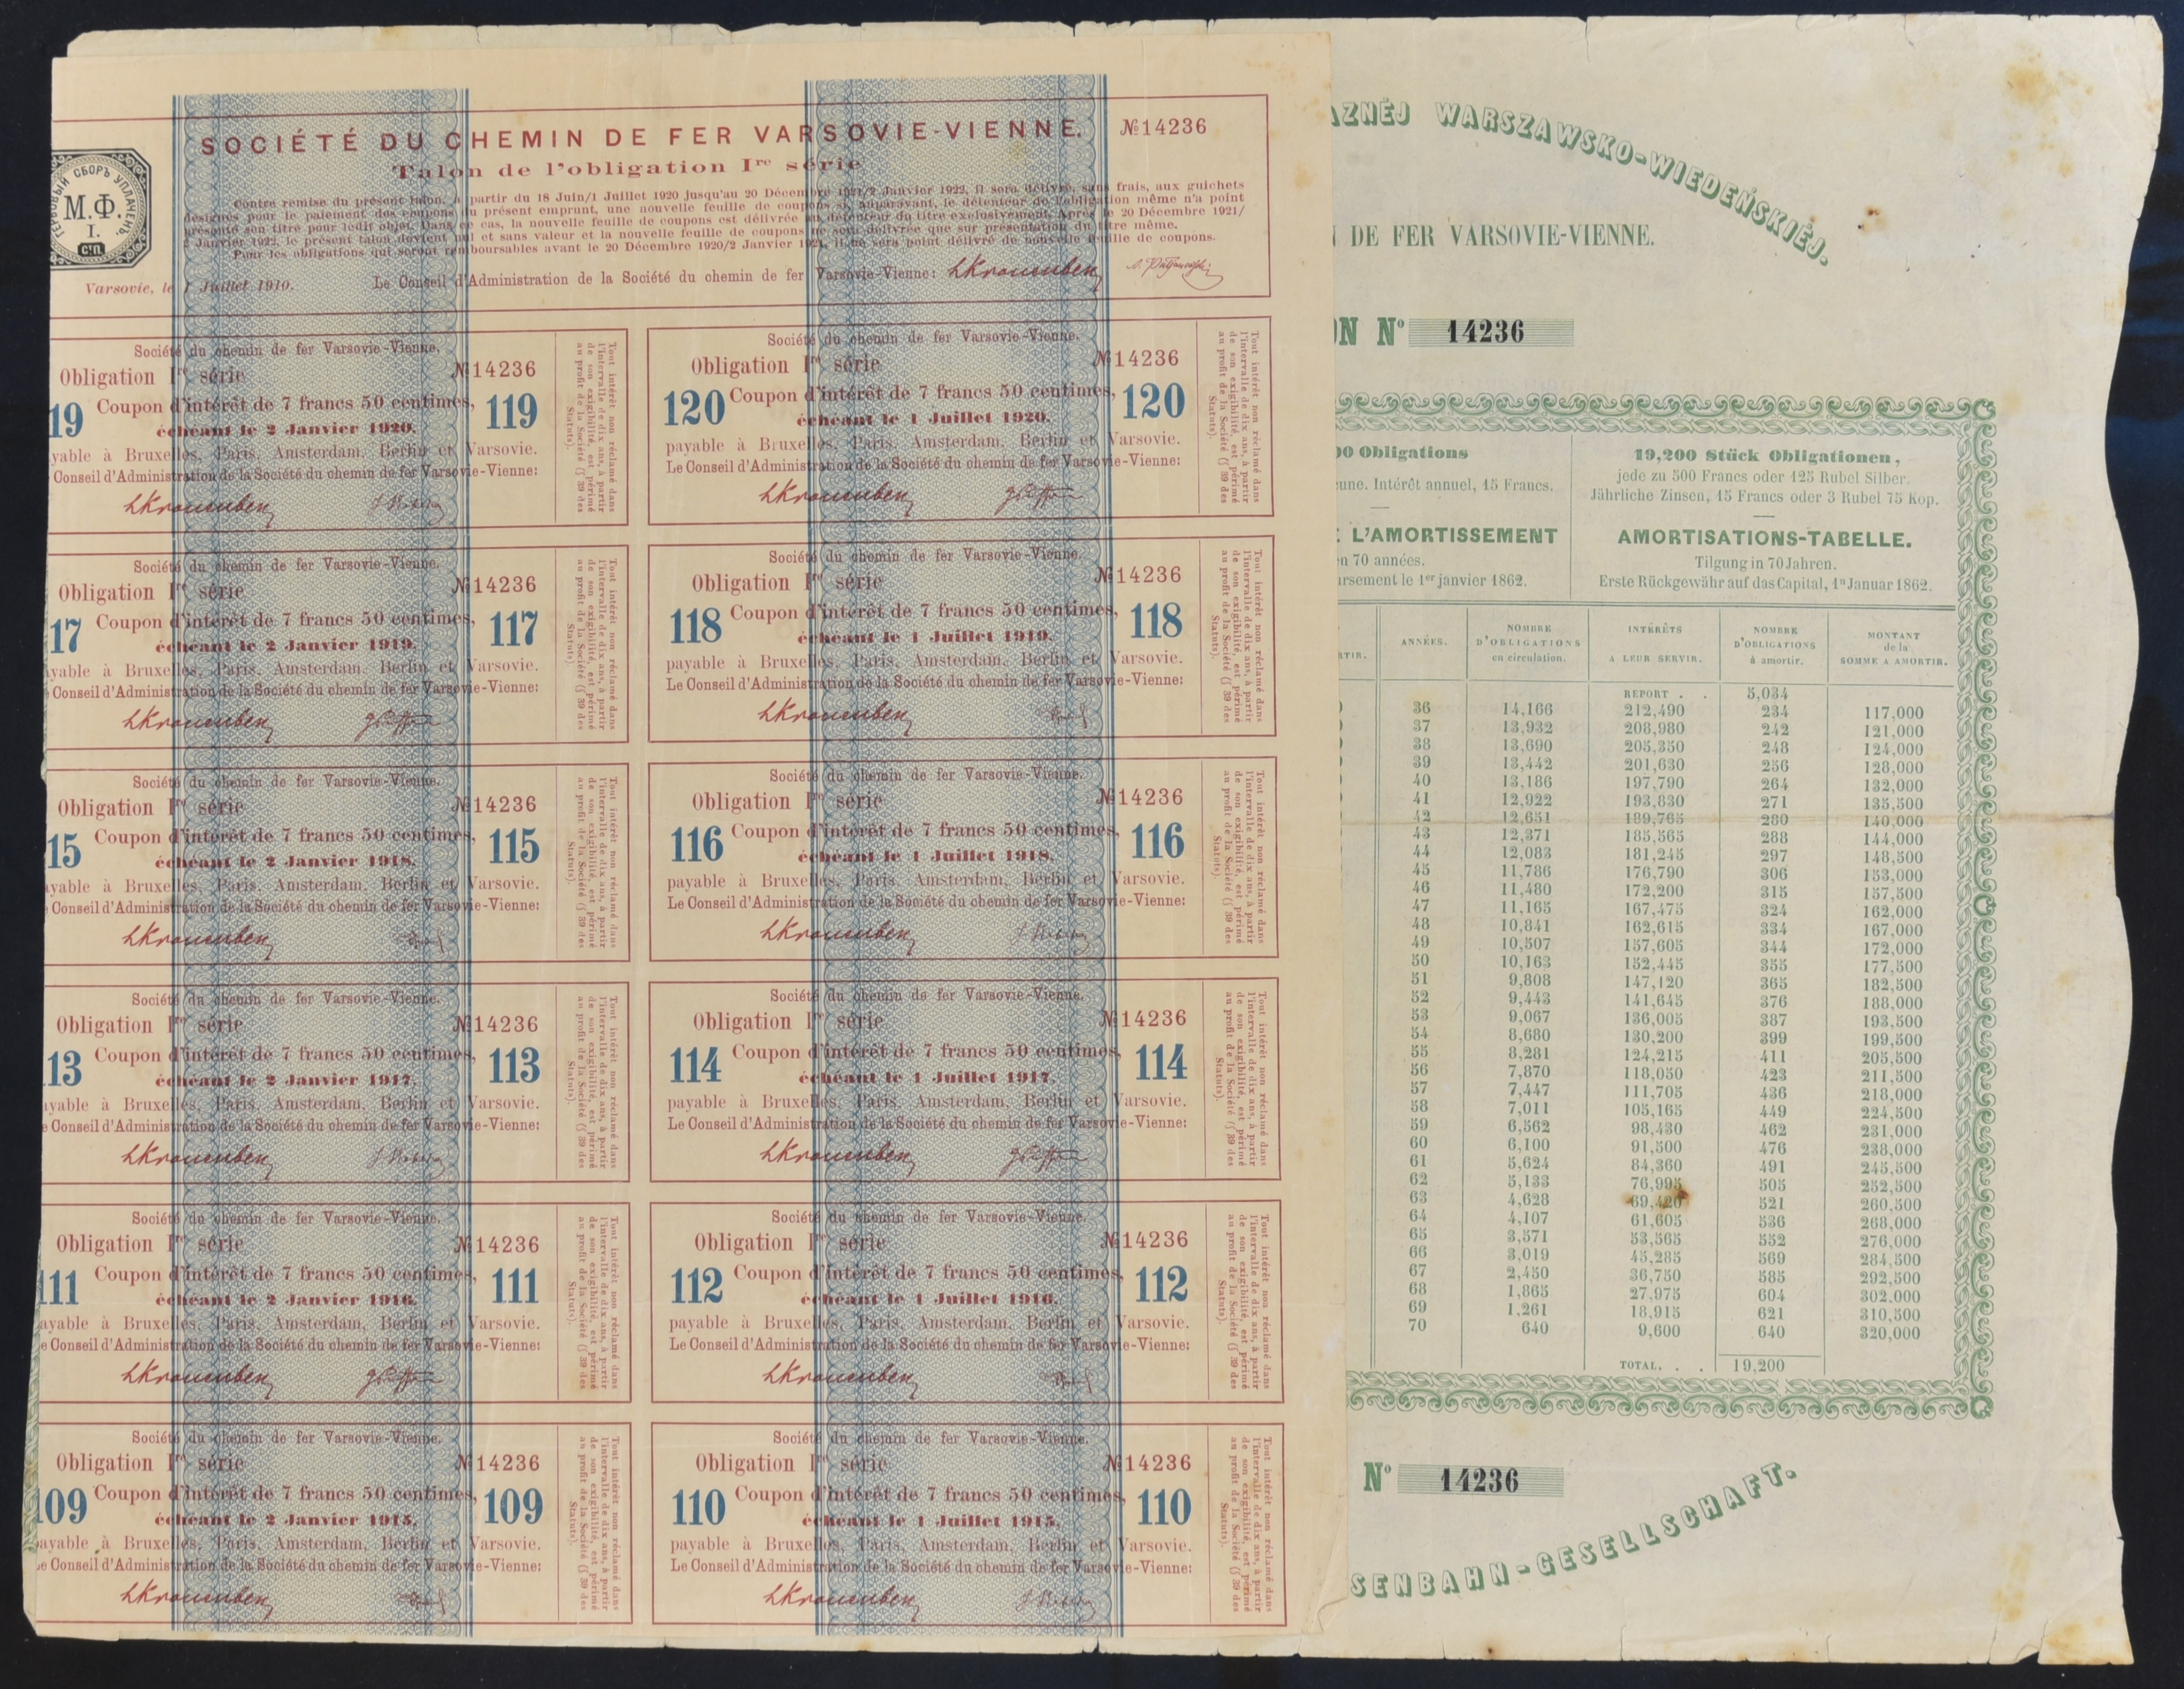 SOCIÉTÉ DU CHEMIN DE FER VARSOVIE-VIENNE. № 14236
Talon de l'obligation Ire série
ГЕРБОВЫЙ СБОРЪ УПЛАЧЕНЪ.
М.Ф.
I.
СП.
Contre remise du présent talon, à partir du 18 Juin/1 Juillet 1920 jusqu'au 20 Décembre 1921/2 Janvier 1922, il sera délivré, sans frais, aux guichets
désignés pour le paiement des coupons du présent emprunt, une nouvelle feuille de coupons si, auparavant, le détenteur de l'obligation même n'a point
présenté son titre pour ledit objet. Dans ce cas, la nouvelle feuille de coupons est délivrée au détenteur du titre exclusivement. Après le 20 Décembre 1921/
2 Janvier 1922, le présent talon devient nul et sans valeur et la nouvelle feuille de coupons ne sera délivrée que sur présentation du titre même.
Pour les obligations qui seront remboursables avant le 20 Décembre 1920/2 Janvier 1921, il ne sera point délivré de nouvelle feuille de coupons.
Varsovie, le 1 Juillet 1910. Le Conseil d'Administration de la Société du chemin de fer Varsovie-Vienne:
Société du chemin de fer Varsovie-Vienne.
Obligation Ire série № 14236
19 Coupon d'intérêt de 7 francs 50 centimes, 119
échéant le 2 Janvier 1920.
yable à Bruxelles, Paris, Amsterdam, Berlin et Varsovie.
Conseil d'Administration de la Société du chemin de fer Varsovie-Vienne:
Tout intérêt non réclamé dans
l'intervalle de dix ans, à partir
de son exigibilité, est périmé
au profit de la Société (§ 39 des
Statuts).
Société du chemin de fer Varsovie-Vienne.
Obligation Ire série № 14236
120 Coupon d'intérêt de 7 francs 50 centimes, 120
échéant le 1 Juillet 1920.
payable à Bruxelles, Paris, Amsterdam, Berlin et Varsovie.
Le Conseil d'Administration de la Société du chemin de fer Varsovie-Vienne:
Tout intérêt non réclamé dans
l'intervalle de dix ans, à partir
de son exigibilité, est périmé
au profit de la Société (§ 39 des
Statuts).
Société du chemin de fer Varsovie-Vienne.
Obligation Ire série № 14236
17 Coupon d'intérêt de 7 francs 50 centimes, 117
échéant le 2 Janvier 1919.
yable à Bruxelles, Paris, Amsterdam, Berlin et Varsovie.
Conseil d'Administration de la Société du chemin de fer Varsovie-Vienne:
Tout intérêt non réclamé dans
l'intervalle de dix ans, à partir
de son exigibilité, est périmé
au profit de la Société (§ 39 des
Statuts).
Société du chemin de fer Varsovie-Vienne.
Obligation Ire série № 14236
118 Coupon d'intérêt de 7 francs 50 centimes, 118
échéant le 1 Juillet 1919.
payable à Bruxelles, Paris, Amsterdam, Berlin et Varsovie.
Le Conseil d'Administration de la Société du chemin de fer Varsovie-Vienne:
Tout intérêt non réclamé dans
l'intervalle de dix ans, à partir
de son exigibilité, est périmé
au profit de la Société (§ 39 des
Statuts).
Société du chemin de fer Varsovie-Vienne.
Obligation Ire série № 14236
15 Coupon d'intérêt de 7 francs 50 centimes, 115
échéant le 2 Janvier 1918.
yable à Bruxelles, Paris, Amsterdam, Berlin et Varsovie.
Conseil d'Administration de la Société du chemin de fer Varsovie-Vienne:
Tout intérêt non réclamé dans
l'intervalle de dix ans, à partir
de son exigibilité, est périmé
au profit de la Société (§ 39 des
Statuts).
Société du chemin de fer Varsovie-Vienne.
Obligation Ire série № 14236
116 Coupon d'intérêt de 7 francs 50 centimes, 116
échéant le 1 Juillet 1918.
payable à Bruxelles, Paris, Amsterdam, Berlin et Varsovie.
Le Conseil d'Administration de la Société du chemin de fer Varsovie-Vienne:
Tout intérêt non réclamé dans
l'intervalle de dix ans, à partir
de son exigibilité, est périmé
au profit de la Société (§ 39 des
Statuts).
Société du chemin de fer Varsovie-Vienne.
Obligation Ire série № 14236
13 Coupon d'intérêt de 7 francs 50 centimes, 113
échéant le 2 Janvier 1917.
ayable à Bruxelles, Paris, Amsterdam, Berlin et Varsovie.
e Conseil d'Administration de la Société du chemin de fer Varsovie-Vienne:
Tout intérêt non réclamé dans
l'intervalle de dix ans, à partir
de son exigibilité, est périmé
au profit de la Société (§ 39 des
Statuts).
Société du chemin de fer Varsovie-Vienne.
Obligation Ire série № 14236
114 Coupon d'intérêt de 7 francs 50 centimes, 114
échéant le 1 Juillet 1917.
payable à Bruxelles, Paris, Amsterdam, Berlin et Varsovie.
Le Conseil d'Administration de la Société du chemin de fer Varsovie-Vienne:
Tout intérêt non réclamé dans
l'intervalle de dix ans, à partir
de son exigibilité, est périmé
au profit de la Société (§ 39 des
Statuts).
Société du chemin de fer Varsovie-Vienne.
Obligation Ire série № 14236
111 Coupon d'intérêt de 7 francs 50 centimes, 111
échéant le 2 Janvier 1916.
ayable à Bruxelles, Paris, Amsterdam, Berlin et Varsovie.
e Conseil d'Administration de la Société du chemin de fer Varsovie-Vienne:
Tout intérêt non réclamé dans
l'intervalle de dix ans, à partir
de son exigibilité, est périmé
au profit de la Société (§ 39 des
Statuts).
Société du chemin de fer Varsovie-Vienne.
Obligation Ire série № 14236
112 Coupon d'intérêt de 7 francs 50 centimes, 112
échéant le 1 Juillet 1916.
payable à Bruxelles, Paris, Amsterdam, Berlin et Varsovie.
Le Conseil d'Administration de la Société du chemin de fer Varsovie-Vienne:
Tout intérêt non réclamé dans
l'intervalle de dix ans, à partir
de son exigibilité, est périmé
au profit de la Société (§ 39 des
Statuts).
Société du chemin de fer Varsovie-Vienne.
Obligation Ire série № 14236
109 Coupon d'intérêt de 7 francs 50 centimes, 109
échéant le 2 Janvier 1915.
ayable à Bruxelles, Paris, Amsterdam, Berlin et Varsovie.
e Conseil d'Administration de la Société du chemin de fer Varsovie-Vienne:
Tout intérêt non réclamé dans
l'intervalle de dix ans, à partir
de son exigibilité, est périmé
au profit de la Société (§ 39 des
Statuts).
Société du chemin de fer Varsovie-Vienne.
Obligation Ire série № 14236
110 Coupon d'intérêt de 7 francs 50 centimes, 110
échéant le 1 Juillet 1915.
payable à Bruxelles, Paris, Amsterdam, Berlin et Varsovie.
Le Conseil d'Administration de la Société du chemin de fer Varsovie-Vienne:
Tout intérêt non réclamé dans
l'intervalle de dix ans, à partir
de son exigibilité, est périmé
au profit de la Société (§ 39 des
Statuts).
AZNÉJ WARSZAWSKO-WIEDEŃSKIÉJ.
DE FER VARSOVIE-VIENNE.
ON No 14236
00 Obligations
cune. Intérêt annuel, 15 Francs.
L'AMORTISSEMENT
en 70 années.
rsement le 1er janvier 1862.
19,200 Stück Obligationen,
jede zu 500 Francs oder 125 Rubel Silber.
Jährliche Zinsen, 15 Francs oder 3 Rubel 75 Kop.
AMORTISATIONS-TABELLE.
Tilgung in 70 Jahren.
Erste Rückgewähr auf das Capital, 1n Januar 1862.
RTIR. ANNÉES. NOMBRE D'OBLIGATIONS en circulation. INTÉRÊTS A LEUR SERVIR. NOMBRE D'OBLIGATIONS à amortir. MONTANT de la SOMME A AMORTIR.
REPORT . . 5,034
36 14,166 212,490 234 117,000
37 13,932 208,980 242 121,000
38 13,690 205,350 248 124,000
39 13,442 201,630 256 128,000
40 13,186 197,790 264 132,000
41 12,922 193,830 271 135,500
42 12,651 189,765 280 140,000
43 12,371 185,565 288 144,000
44 12,083 181,245 297 148,500
45 11,786 176,790 306 153,000
46 11,480 172,200 315 157,500
47 11,165 167,475 324 162,000
48 10,841 162,615 334 167,000
49 10,507 157,605 344 172,000
50 10,163 152,445 355 177,500
51 9,808 147,120 365 182,500
52 9,443 141,645 376 188,000
53 9,067 136,005 387 193,500
54 8,680 130,200 399 199,500
55 8,281 124,215 411 205,500
56 7,870 118,050 423 211,500
57 7,447 111,705 436 218,000
58 7,011 105,165 449 224,500
59 6,562 98,430 462 231,000
60 6,100 91,500 476 238,000
61 5,624 84,360 491 245,500
62 5,133 76,995 505 252,500
63 4,628 69,420 521 260,500
64 4,107 61,605 536 268,000
65 3,571 53,565 552 276,000
66 3,019 45,285 569 284,500
67 2,450 36,750 585 292,500
68 1,865 27,975 604 302,000
69 1,261 18,915 621 310,500
70 640 9,600 640 320,000
TOTAL. . . 19,200
No 14236
SENBAHN-GESELLSCHAFT.